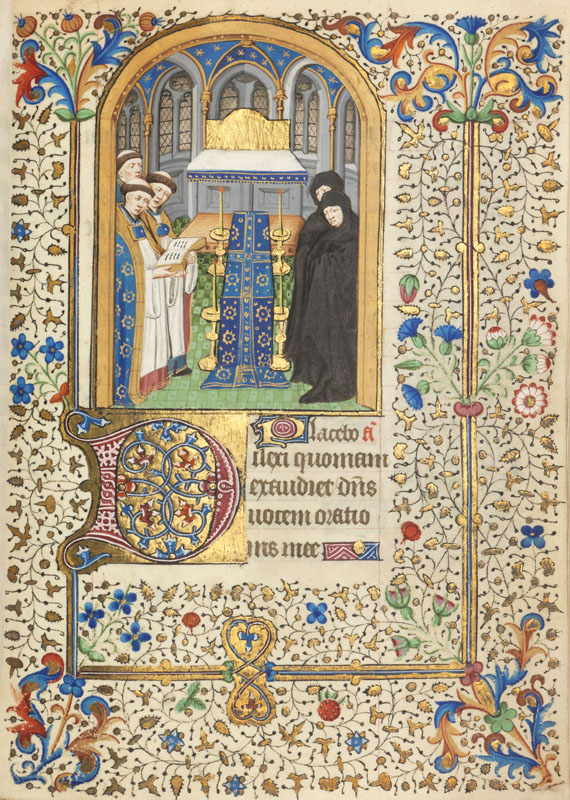 Placebo a͞
Dilexi quoniam
exaudiet dn̄s
uocem oratio
nis mee